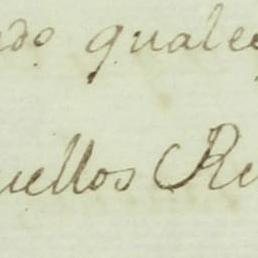 ndo qualee
uellos Re